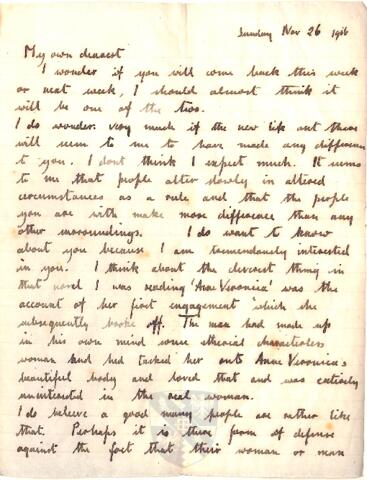 Sunday Nov 26 1916
My own dearest
I wonder if you will come back this week
or next week, I should almost think it
will be one of the two.
I do wonder very much if the new life out there
will seem to me to have made any difference
to you. I dont think I expect much. It seems
to me that people alter slowly in altered
circumstances as a rule and that the people
you are with make more difference than any
other surroundings. I do want to know
about you because I am tremendously interested
in you. I think about the cleverest thing in
that novel I was reading 'Ann Veronica' was the
account of her first engagement which she
subsequently broke off. The man had made up
in his own mind some etherial characterless
woman and had tacked her onto Anne Veronica's
beautiful body and loved that and was entirely
uninterested in the real woman.
I do believe a good many people are rather like
that. Perhaps it is there form of defense
against the fact that their woman or man